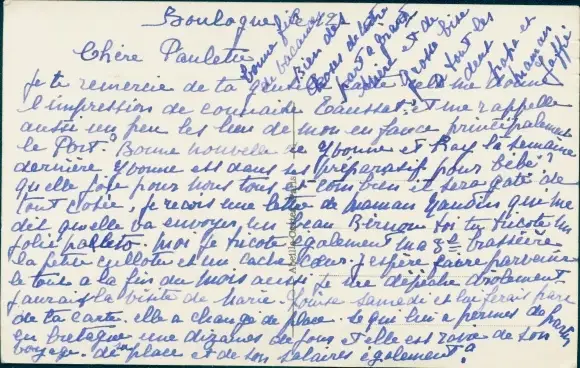 Boulogne le 12
Chère Paulette
Je te remercie de ta gentille carte cela me donne
l'impression de connaitre Taussat, et me rappelle
aussi un peu les lieu de mon enfance principalement
le Port. Bonne nouvelle de Yvonne et Ray la semaine
dernière Yvonne est dans ses préparatif pour Bébé?
quelle joie pour nous tous et combien il sera gaté de
tout cotée, je reçois une lettre de maman qui me
dit quelle va envoyer un beau toi tu tricote un
joli paletot. moi je tricote également ma 3e brassière
la petite culotte et un cache cœur. J'espère faire parvenir
le tout a la fin du mois aussi je me dépêche drôlement
J'aurais la visite de Marie Louise samedi et lui ferais part
de ta carte. elle a changé de place. Ce qui lui a permis de partir
en bretagne une dizaine de jours et elle est ravie de son
voyage. de sa place et de son salaires également.
Bonne fin
de vacances
Bien des
choses de notre
part a
et de
Grosse bise
a tout les
deux
papa et
maman